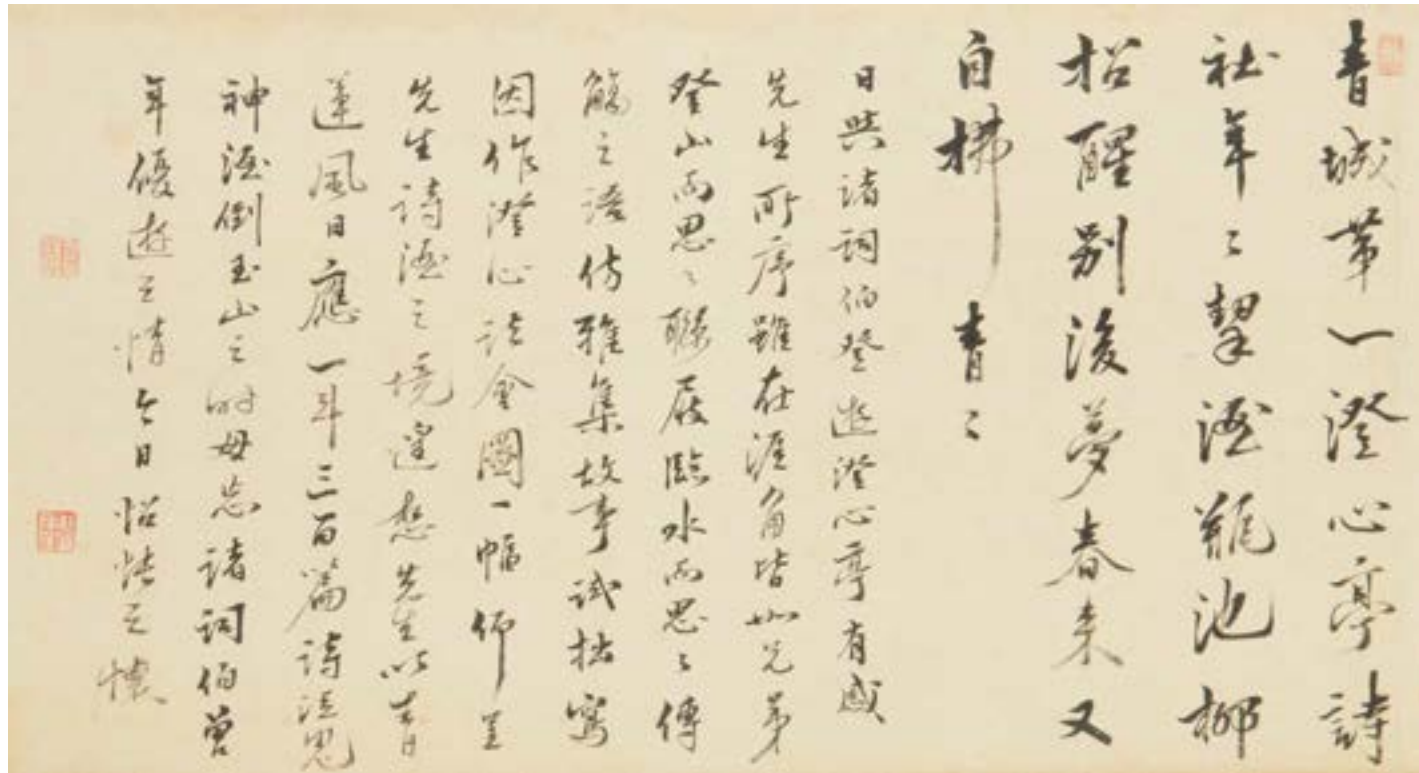 青城第一澄心亭詩
社年〻挈酒瓶池柳
招醒別後夢春來又
自拂青〻
日與諸詞伯登遊澄心亭有感
先生所序雖在涯角皆如兄弟
登山而思〻聯屐臨水而思〻傳
觴之語仿雅集故事試拙寫
因作澄心讌會圖一幅仰呈
先生詩酒之境遑想先生以青
蓮風日應一斗三百篇詩泣鬼
神酒倒玉山之時毋忘諸詞伯曾
年優遊之情今日怊悵之懷